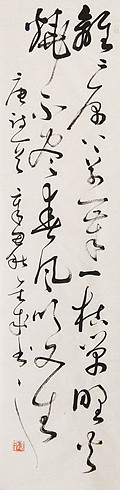 離々原上草一歲一枯榮野火
燒不盡春風吹又生
唐詩一首 書